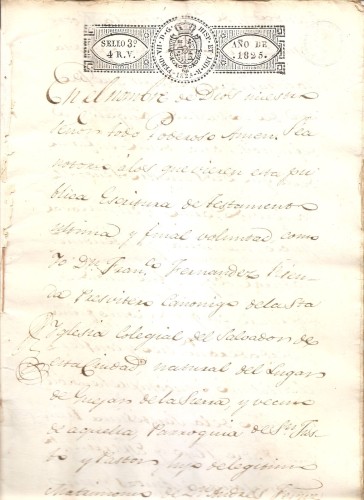 SELLO 3º
4 R.V.
AÑO DE
1825.
En el nombre de Dios nuestro
Señor todo Poderoso Amen Sea
notorio á los que vieren esta pu
blica Escritura de testamento
ultima y final voluntad, como
Yo Dn. Fernandez
Presvitero Canonigo de la Sta
Yglesia Colegial del Salvador de
esta Ciudad natural del Lugar
de de la Sierra y vecino
de aquella Parroquia de Sn. Jus
to y Pastor hijo de legitimo
Matrimonio de Dn.